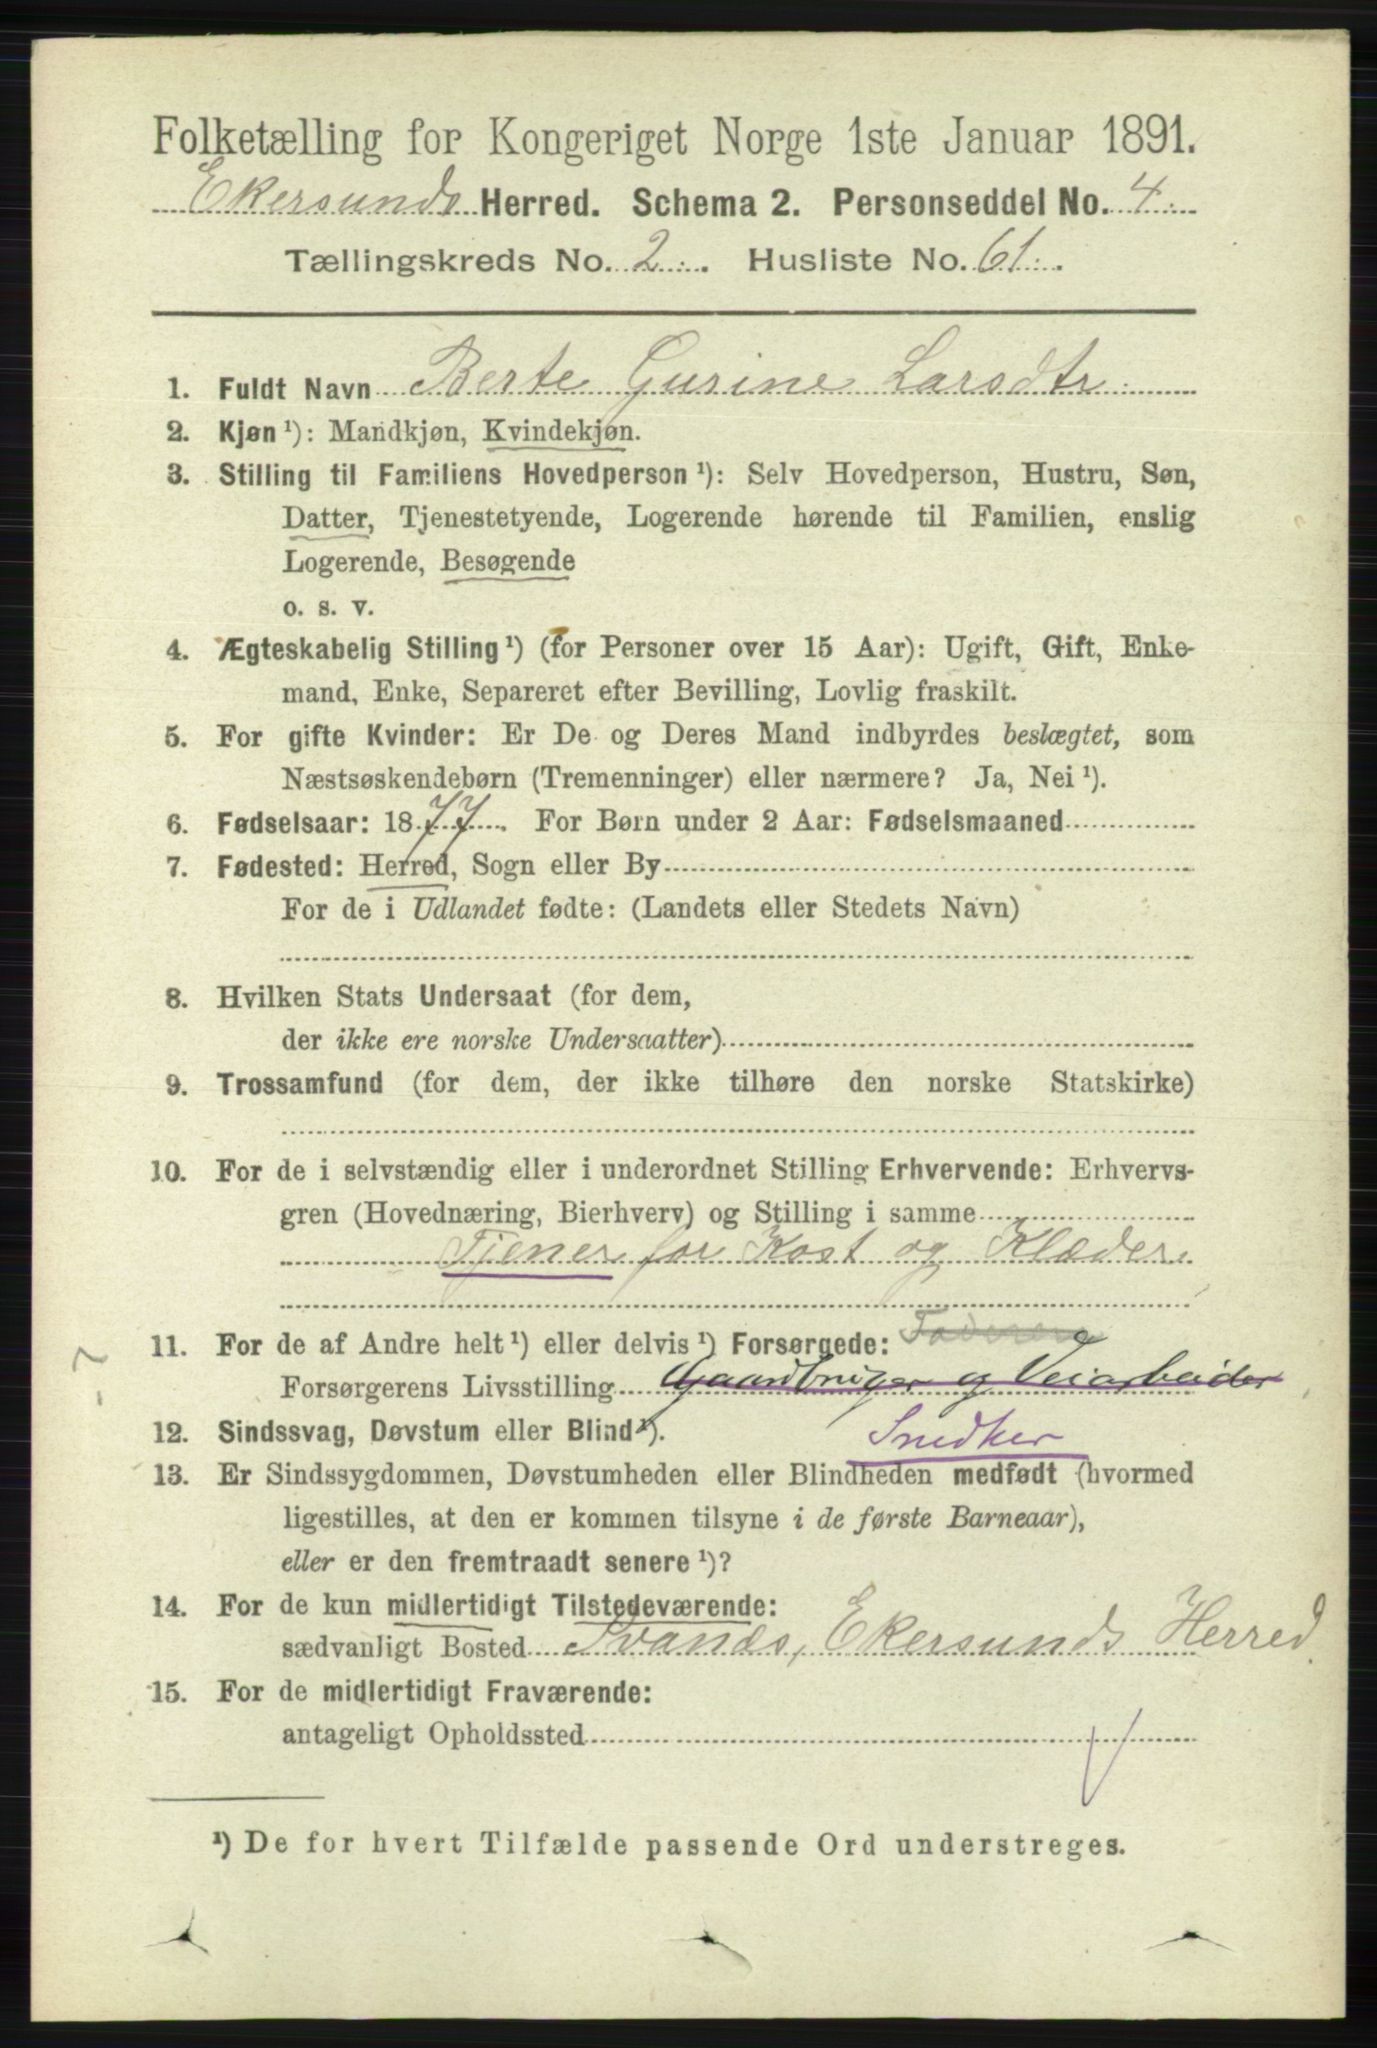 Folketælling for Kongeriget Norge 1ste Januar 1891.
Ekersunds Herred. Schema 2. Personseddel No. 4
Tællingskreds No. 2. Husliste No. 61.
1. Fuldt Navn Berte Gurine Larsdtr.
2. Kjøn ¹): Mandkjøn, Kvindekjøn.
3. Stilling til Familiens Hovedperson ¹): Selv Hovedperson, Hustru, Søn,
Datter, Tjenestetyende, Logerende hørende til Familien, enslig
Logerende, Besøgende
o. s. v.
4. Ægteskabelig Stilling ¹) (for Personer over 15 Aar): Ugift, Gift, Enke-
mand, Enke, Separeret efter Bevilling, Lovlig fraskilt.
5. For gifte Kvinder: Er De og Deres Mand indbyrdes beslægtet, som
Næstsøskendebørn (Tremenninger) eller nærmere? Ja, Nei ¹).
6. Fødselsaar: 1877. For Børn under 2 Aar: Fødselsmaaned
7. Fødested: Herred, Sogn eller By
For de i Udlandet fødte: (Landets eller Stedets Navn)
8. Hvilken Stats Undersaat (for dem,
der ikke ere norske Undersaatter)
9. Trossamfund (for dem, der ikke tilhøre den norske Statskirke)
10. For de i selvstændig eller i underordnet Stilling Erhvervende: Erhvervs-
gren (Hovednæring, Bierhverv) og Stilling i samme
Tjener for Kost og Klæder.
11. For de af Andre helt ¹) eller delvis ¹) Forsørgede:
Forsørgerens Livsstilling Gaardbruger og Veiarbeider
12. Sindssvag, Døvstum eller Blind ¹). Snedker
13. Er Sindssygdommen, Døvstumheden eller Blindheden medfødt (hvormed
ligestilles, at den er kommen tilsyne i de første Barneaar),
eller er den fremtraadt senere ¹)?
14. For de kun midlertidigt Tilstedeværende:
sædvanligt Bosted Svanæs, Ekersunds Herred.
15. For de midlertidigt Fraværende:
antageligt Opholdssted
¹) De for hvert Tilfælde passende Ord understreges.